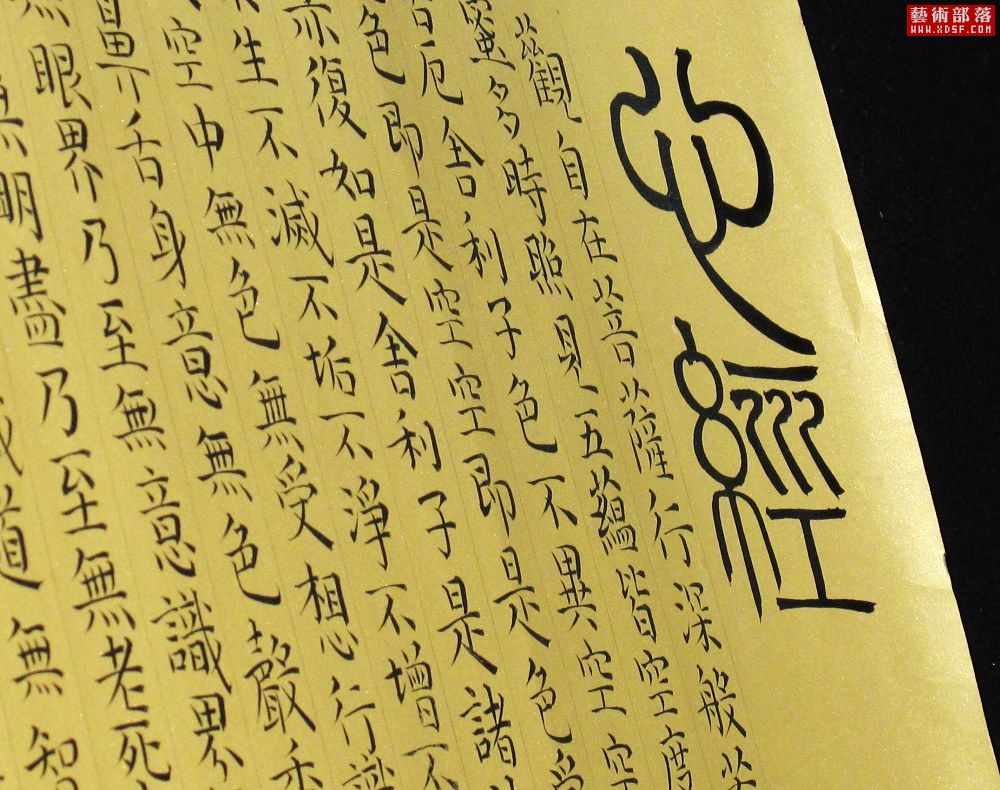 心經
觀自在菩薩行深般若
蜜多時照見五蘊皆空度
厄舍利子色不異空空
色即是空空即是色受
亦復如是舍利子是諸
生不滅不垢不淨不增不
空中無色無受想行識
鼻舌身意無色聲香
無眼界乃至無意識界
明盡乃至無老死
道無智
藝術部落
WWW.XDSF.COM